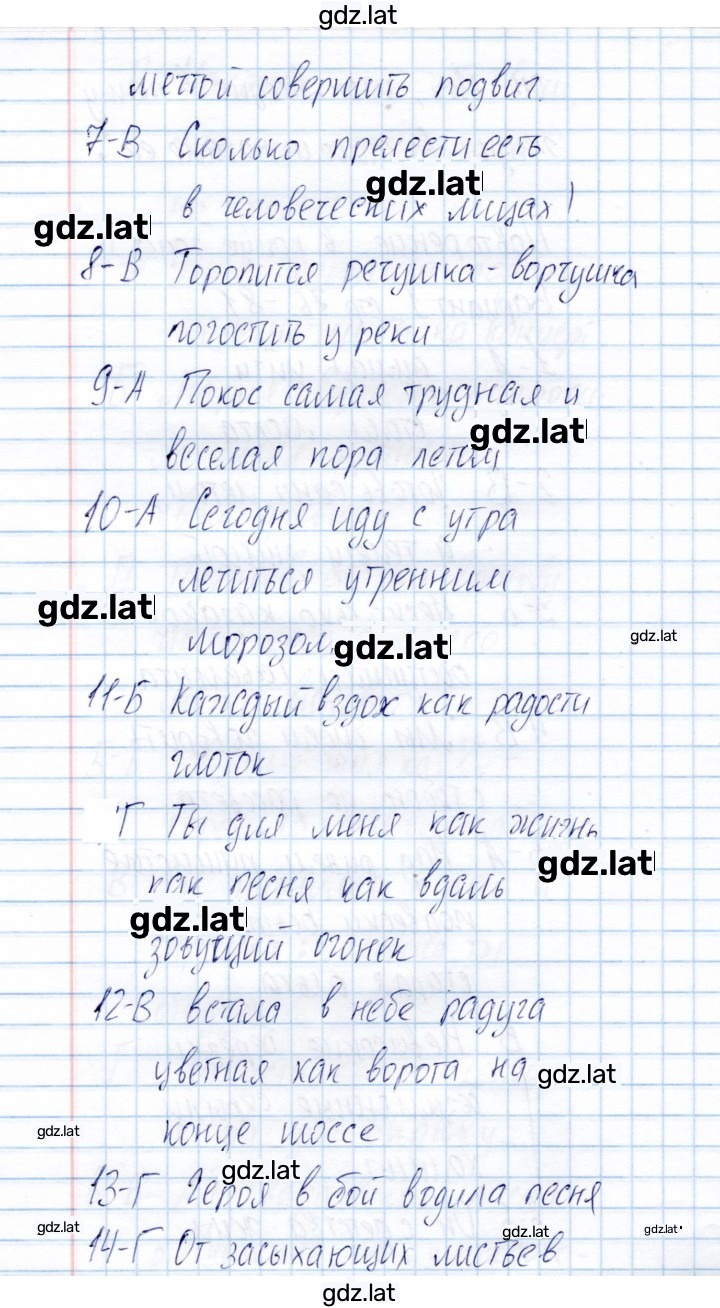 gdz.lat
мечтой совершить подвиг.
7-В Сколько прелести есть
gdz.lat
в человеческих лицах!
gdz.lat
8-В Торопится речушка-ворчушка
погостить у реки
9-А Покос самая трудная и
gdz.lat
веселая пора летом
10-А Сегодня иду с утра
лечиться утренним
gdz.lat
морозом.
gdz.lat
gdz.lat
11-Б Каждый вздох как радости
глоток
Г Ты для меня как жизнь
gdz.lat
как песня как вдаль
gdz.lat
зовущий огонек
12-В встала в небе радуга
цветная как ворота на
gdz.lat
gdz.lat
конце шоссе
gdz.lat
13-Г Героя в бой водила песня
gdz.lat
gdz.lat
gdz.lat
14-Г От засыхающих листьев
gdz.lat